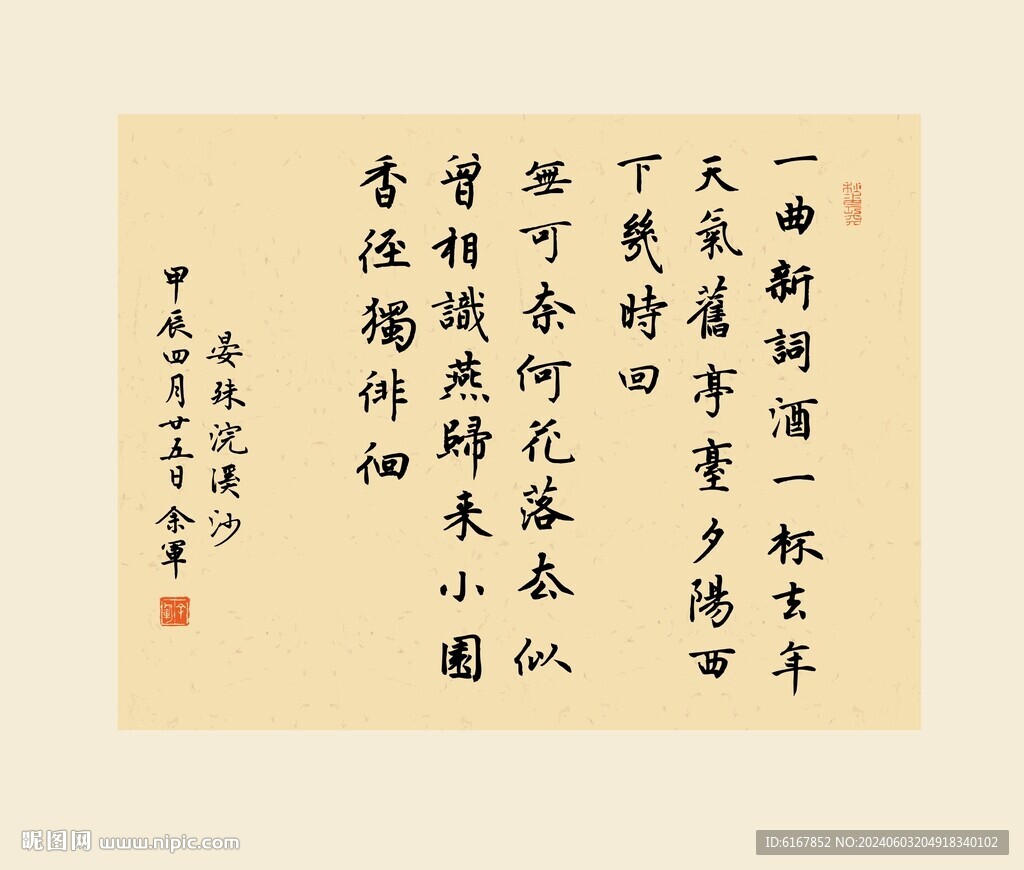 一曲新詞酒一杯去年
天氣舊亭臺夕陽西
下幾時回
無可奈何花落去似
曾相識燕歸来小園
香徑獨徘徊
晏殊浣溪沙
甲辰四月廿五日余軍
昵图网 www.nipic.com
ID:6167852 NO:20240603204918340102